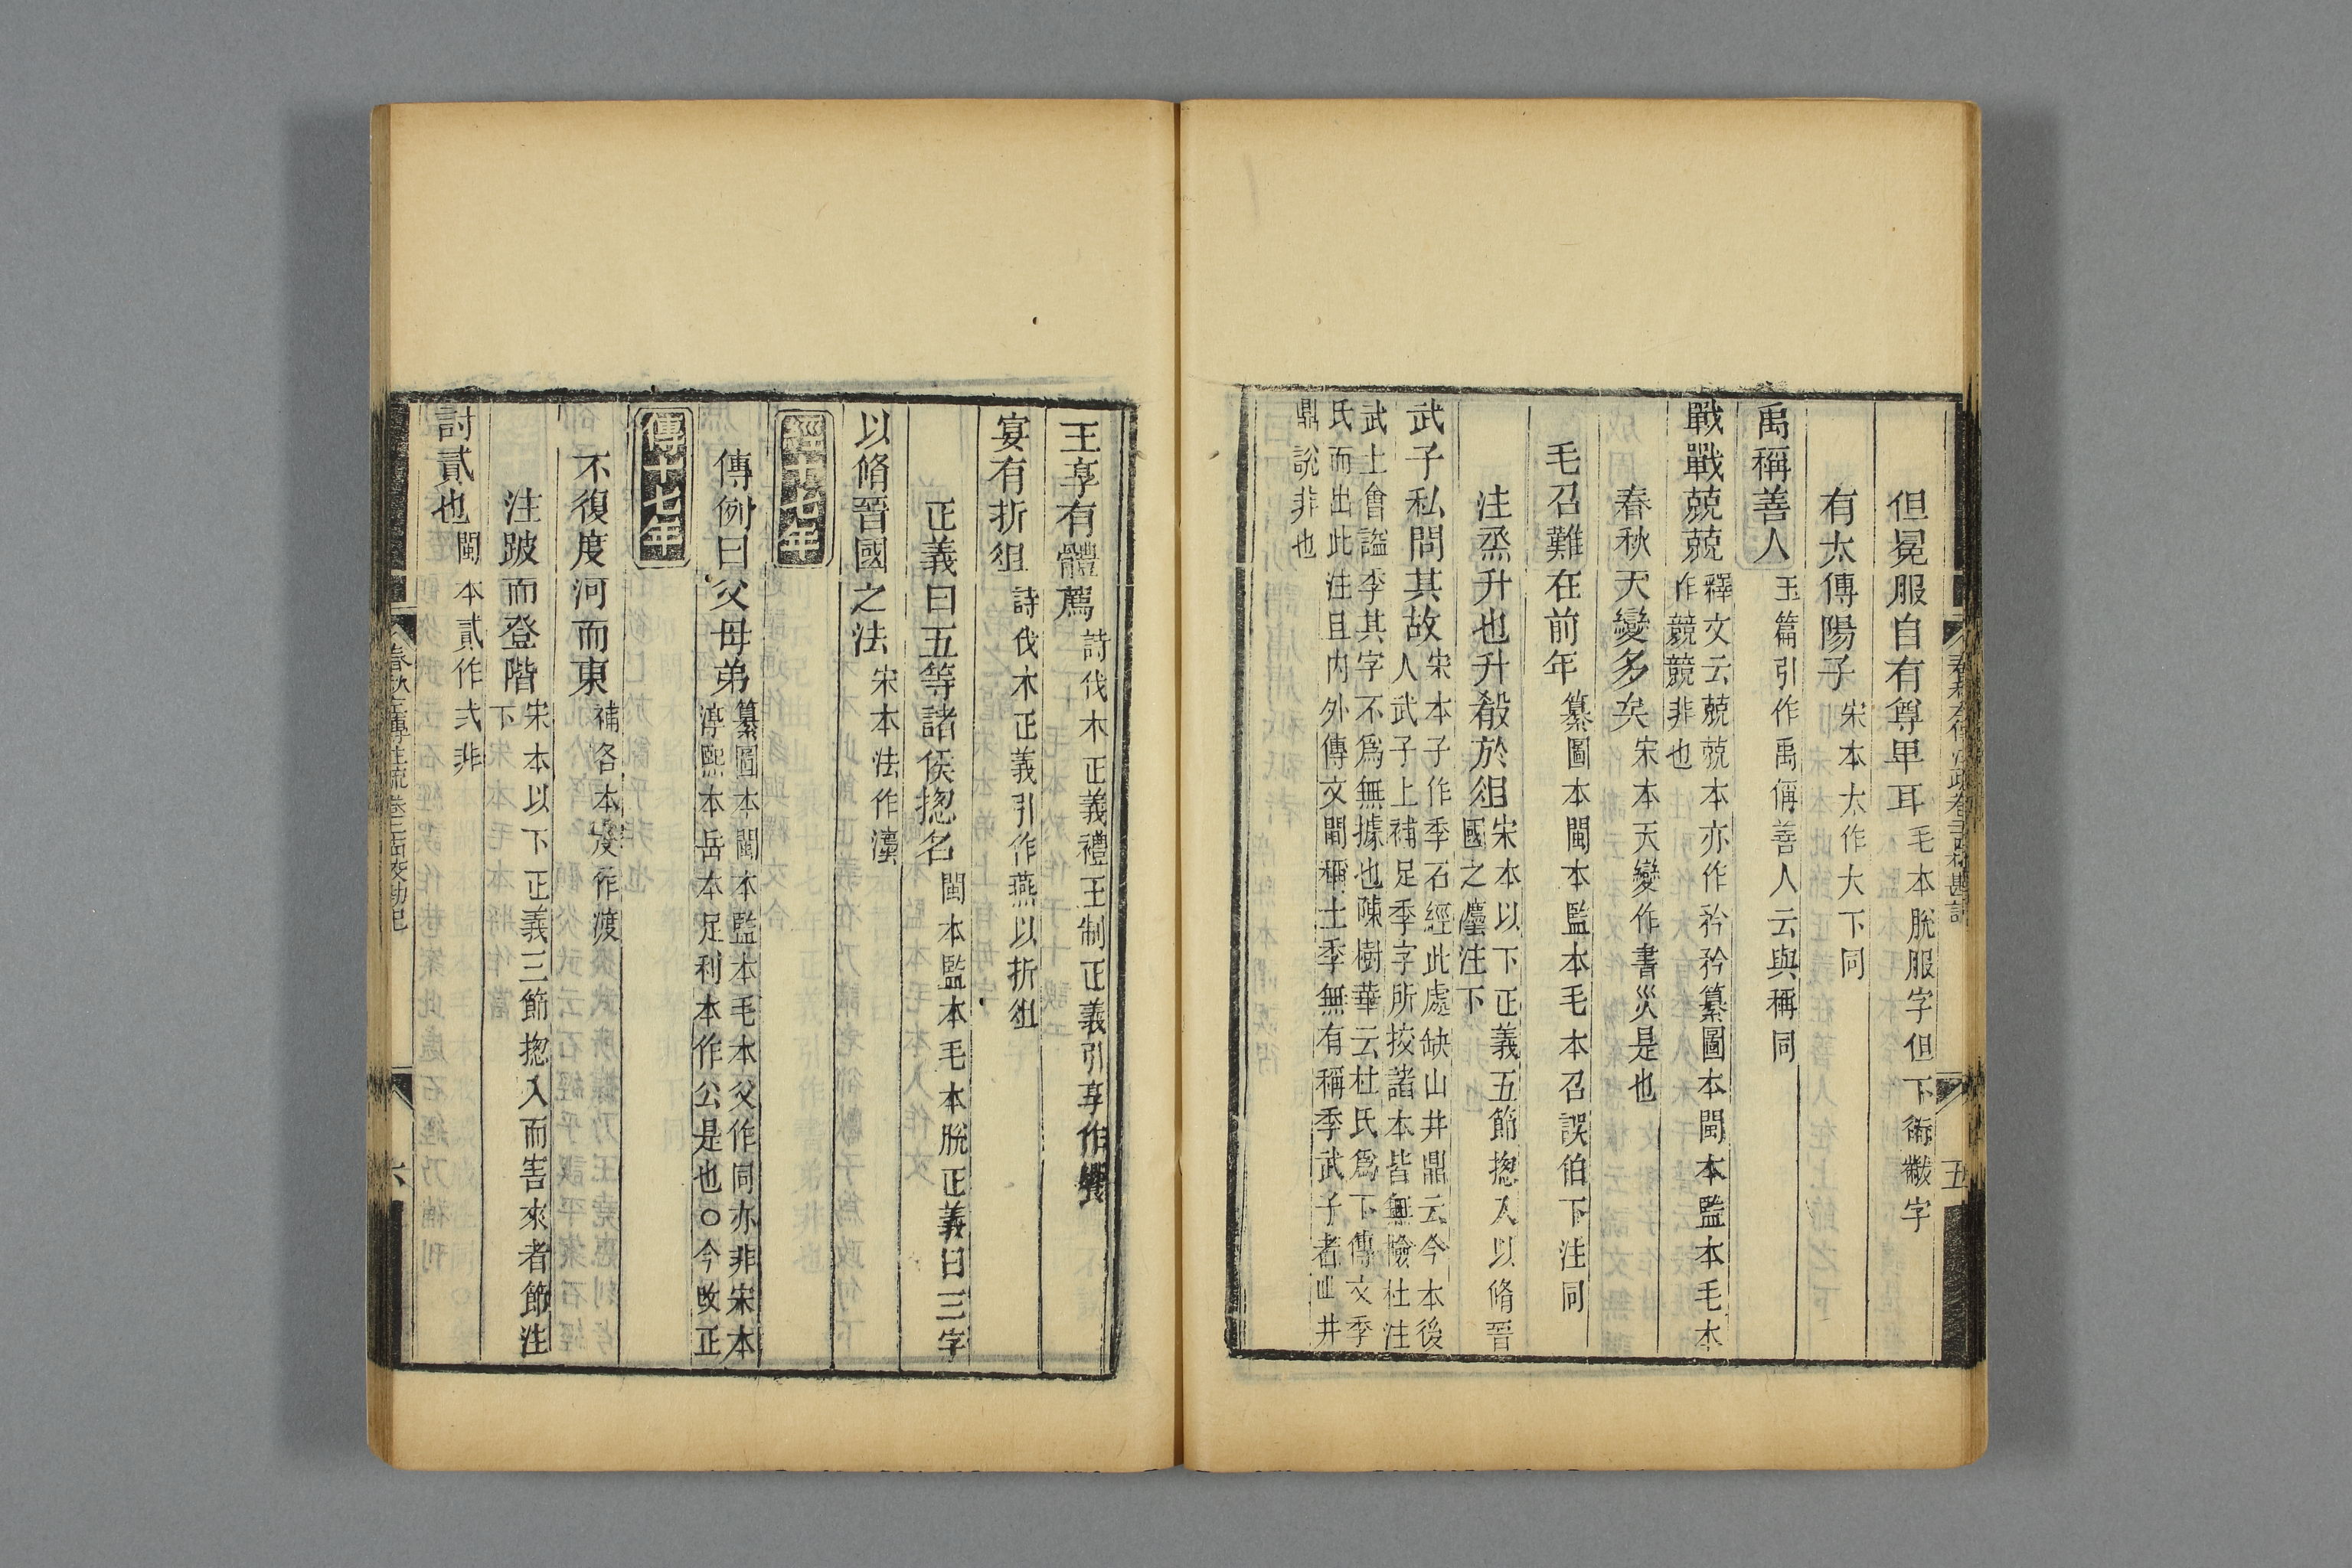 但冕服自有尊卑耳毛本脫服字但下衍黻字
有太傅陽子宋本太作大下同
禹稱善人玉篇引作禹偁善人云與稱同
戰戰兢兢釋文云兢兢本亦作矜矜纂圖本閩本監本毛本
作競競非也
春秋天變多矣宋本天變作書災是也
毛召難在前年纂圖本閩本監本毛本召誤伯下注同
注烝升也升殽於俎宋本以下正義五節揔入以脩晉
國之灋注下
武子私問其故宋本子作季石經此處缺山井鼎云今本後
人武子上補足季字所挍諸本皆無檢杜注
武士會謚季其字不爲無據也陳樹華云杜氏爲下傳文季
氏而出此注且內外傳文閒稱士季無有稱季武子者山井
鼎說非也
春秋左傳注疏卷二十四挍勘記
五
王享有體薦詩伐木正義禮王制正義引享作饗
宴有折俎詩伐木正義引作燕以折俎
正義曰五等諸侯揔名閩本監本毛本脫正義曰三字
以脩晉國之法宋本法作灋
經十七年
傳例曰父母弟纂圖本閩本監本毛本父作同亦非宋本
淳熙本岳本足利本作公是也○今改正
傳十七年
不復度河而東補各本度作渡
注跛而登階宋本以下正義三節揔入而害來者節注
下
討貳也閩本貳作弍非
春秋左傳注疏卷二十四挍勘記
六